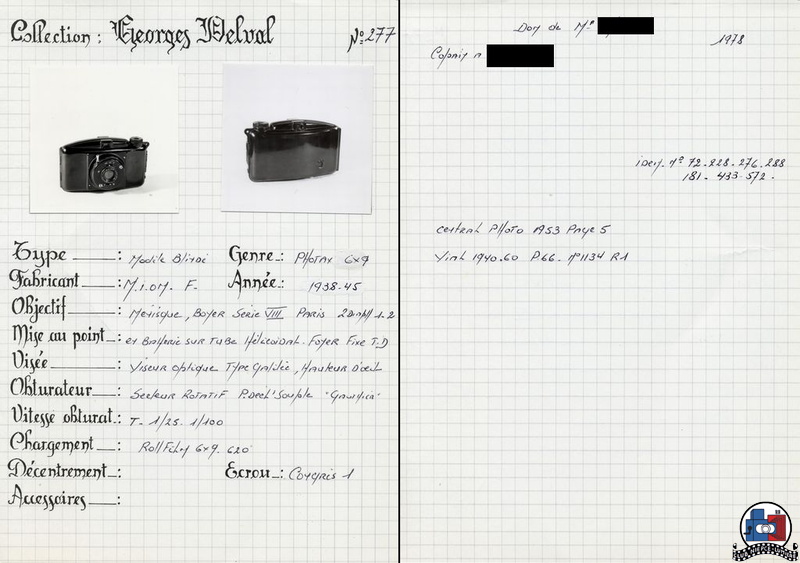 Collection : Georges Delval N° 277
Type : Modèle Blindé Genre : Photax 6x9
Fabricant : M.I.O.M. F. Année : 1938-45
Objectif : Ménisque, Boyer Serie VIII Paris 1.2
Mise au point : et Barrerie sur Tube Hélicoïdal. Foyer Fixe T.D
Visée : Viseur Optique Type Galilée, Hauteur d'œil
Obturateur : Secteur Rotatif P.Decl'Souple
Vitesse obturat. : T - 1/25. 1/100
Chargement : 6x9. 620
Décentrement : Ecrou : Congrès 1
Accessoires :
Don de Mr 1978
idem. n° 72-228-276-288
181 - 433-572 -
central Photo A53 Page 5
Vint 1940.60 P.66. n°1134 R1